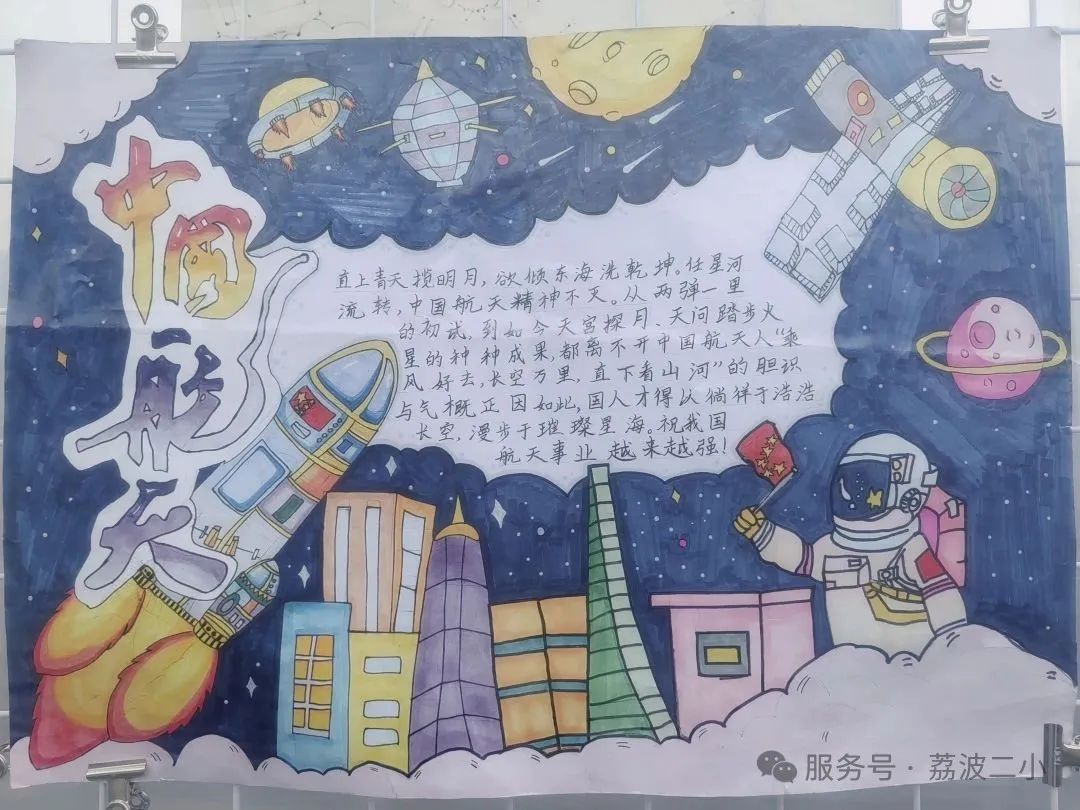 中国航天
直上青天揽明月,欲倾东海洗乾坤。任星河
流转,中国航天精神不灭。从两弹一里
的初试,到如今天宫探月、天问踏步火
星的种种成果,都离不开中国航天人“乘
风好去,长空万里,直下看山河”的胆识
与气概正因如此,国人才得以徜徉于浩浩
长空,漫步于璀璨星海。祝我国
航天事业越来越强!
服务号·荔波二小